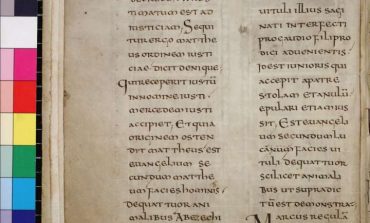 MATUM EST AD
IUSTICIAM, SEQUI
TUR ERGO MATTHE
US ORDINEM IUSTI
CIAE DICIT DENIQUE
QUI RECEPERIT IUSTŪ
IN NOMINE IUSTI
MERCEDEM IUSTI
ACCIPIET, ET QUIA
ORIGINEM OSTEN
DIT MATTHEUS EST
EVANGELIUM SE
CUNDUM MATTHE
UM FACIES HOMINIS
DE QUATTUOR ANI
MALIBUS ABEZECHI
VITULI ILLIUS SAGI
NATI INTERFECTI
PRO GAUDIO FILII PRO
DIGI ADVENIENTIS
IDEST IUNIORIS QUI
ACCIPIT A PATRE
STOLAM ET ANULŪ
EPULARI ETIAM IUS
SIT, EST EVANGELI
UM SECUNDUM LU
CANUM FACIES VI
TULI DE QUATTUOR
SCILICET ANIMALI
BUS UT SUPRA DIC
TUM EST DEMONSTRA
MARCUS REGULA